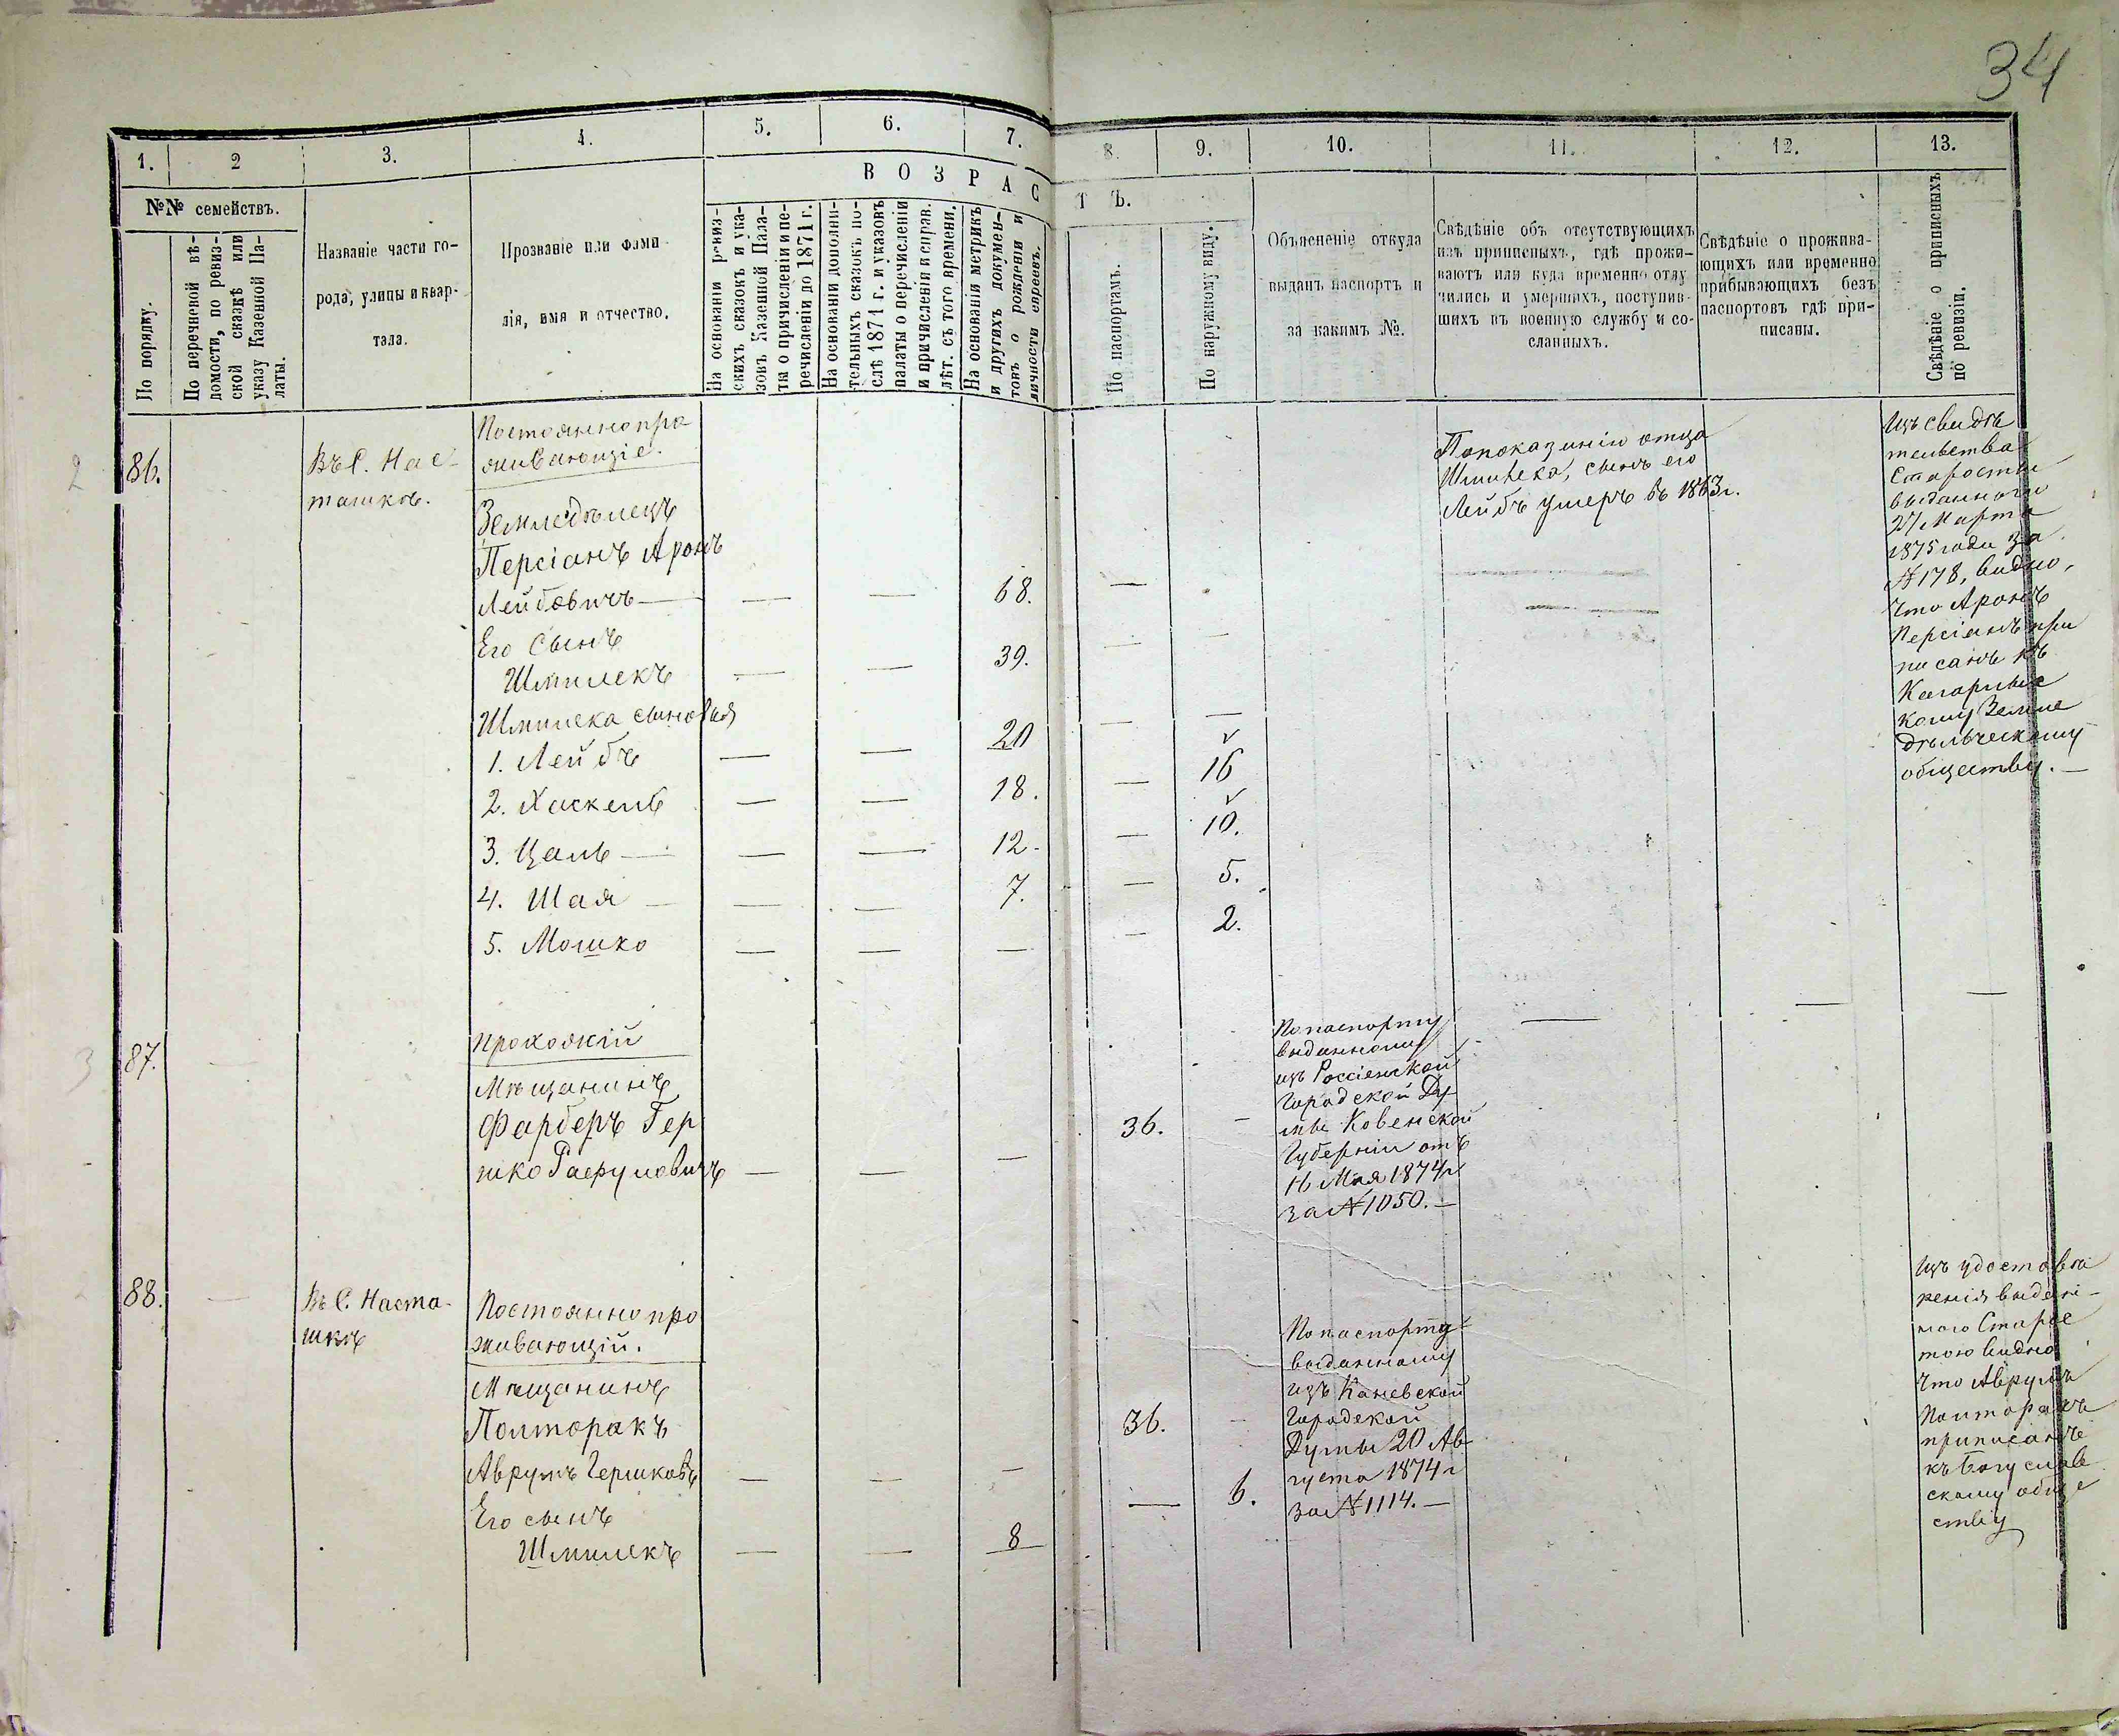 34
1.
2
3.
4.
5.
6.
7.
8.
9.
10.
11.
12.
13.
ВОЗРАС
ТЪ.
№№ семействъ.
По порядку.
По перечневой вѣ-
домости, по ревиз-
ской сказкѣ или
указу Казенной Па-
латы.
Названіе части го-
рода, улицы и квар-
тала.
Прозваніе или фами
лія, имя и отчество.
На основаніи ревиз-
скихъ сказокъ и ука-
зовъ Казенной Пала-
ты о причисленіи и пе-
речисленіи до 1871 г.
На основаніи дополни-
тельныхъ сказокъ по-
слѣ 1871 г. и указовъ
палаты о перечисленіи
и причисленіи и справ.
лѣт. съ того времени.
На основаніи метрикъ
и другихъ докумен-
товъ о рожденіи и
личности евреевъ.
По паспортамъ.
По наружному виду.
Объясненіе откуда
выданъ паспортъ и
за какимъ №.
Свѣдѣніе объ отсутствующихъ
изъ приписныхъ, гдѣ прожи-
ваютъ или куда временно отлу
чились и умершихъ, поступив-
шихъ въ военную службу и со-
сланныхъ.
Свѣдѣніе о прожива-
ющихъ или временно
прибывающихъ безъ
паспортовъ гдѣ при-
писаны.
Свѣдѣніе о приписныхъ
по ревизіи.
2
86.
Въ С. Нас-
ташкѣ.
Постоянно про
живающіе.
Земледѣлецъ
Персіанъ Аронъ
Лейбовичъ — — — 68. —
Его Сынъ
Шмилекъ — — 39. — —
Шмилека сыновья
1. Лейбъ — — 20 — —
2. Хаскель — — 18. — 16
3. Цаль — — — 12. — 10.
4. Шая — — — 7. — 5.
5. Мошко — — — — 2.
По показанію отца
Шмилека, сынъ его
Лейбъ умеръ въ 1863г.
Изъ свидѣ
тельства
Старосты
выданного
27 Марта
1875 года за
№ 178, видно,
что Аронъ
Персіанъ при
писанъ къ
Кагарлыс
кому Земле
дѣльческому
обществу. —
3
87.
—
Прохожій
Мѣщанинъ
Фарберъ Гер
шко Расруловичъ — — — 36. —
По паспорту
выданному
изъ Россіенской
Городской Ду-
мы Ковенской
Губерніи отъ
16 Мая 1874 г
за № 1050. —
— — —
2
88.
—
Въ С. Наста-
шкѣ
Постоянно про
живающій.
Мѣщанинъ
Полторакъ
Аврумъ Гершковъ — — — 36. —
Его сынъ
Шмилекъ — — 8 — 6.
По паспорту
выданному
изъ Каневской
Городской
Думы 20 Ав
густа 1874 г
за № 1114. —
Изъ удостовѣ
ренія выдан-
ного Старос
тою видно
что Аврумъ
Полторакъ
приписанъ
къ Богуслав
скому обще
ству